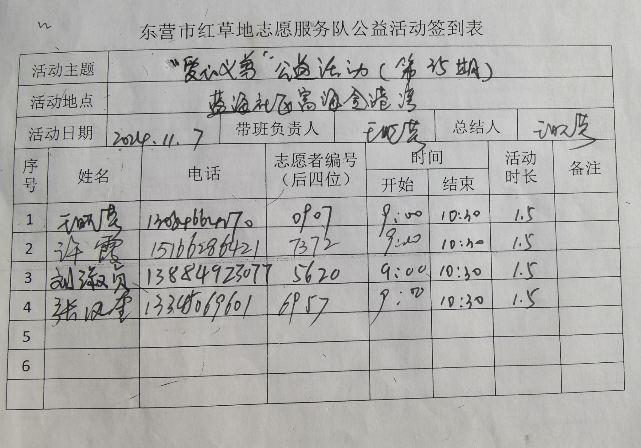 东营市红草地志愿服务队公益活动签到表
活动主题 "爱心义剪"公益活动(第35期)
活动地点 蓝海社区富海金港湾
活动日期 2024.11.7 带班负责人 总结人
序号 姓名 电话 志愿者编号(后四位) 时间 活动时长 备注
开始 结束
1 0907 9:00 10:30 1.5
2 许霞 15166286421 7372 9:00 10:30 1.5
3 刘淑贞 13884923077 5620 9:00 10:30 1.5
4 张 6957 9:00 10:30 1.5
5
6